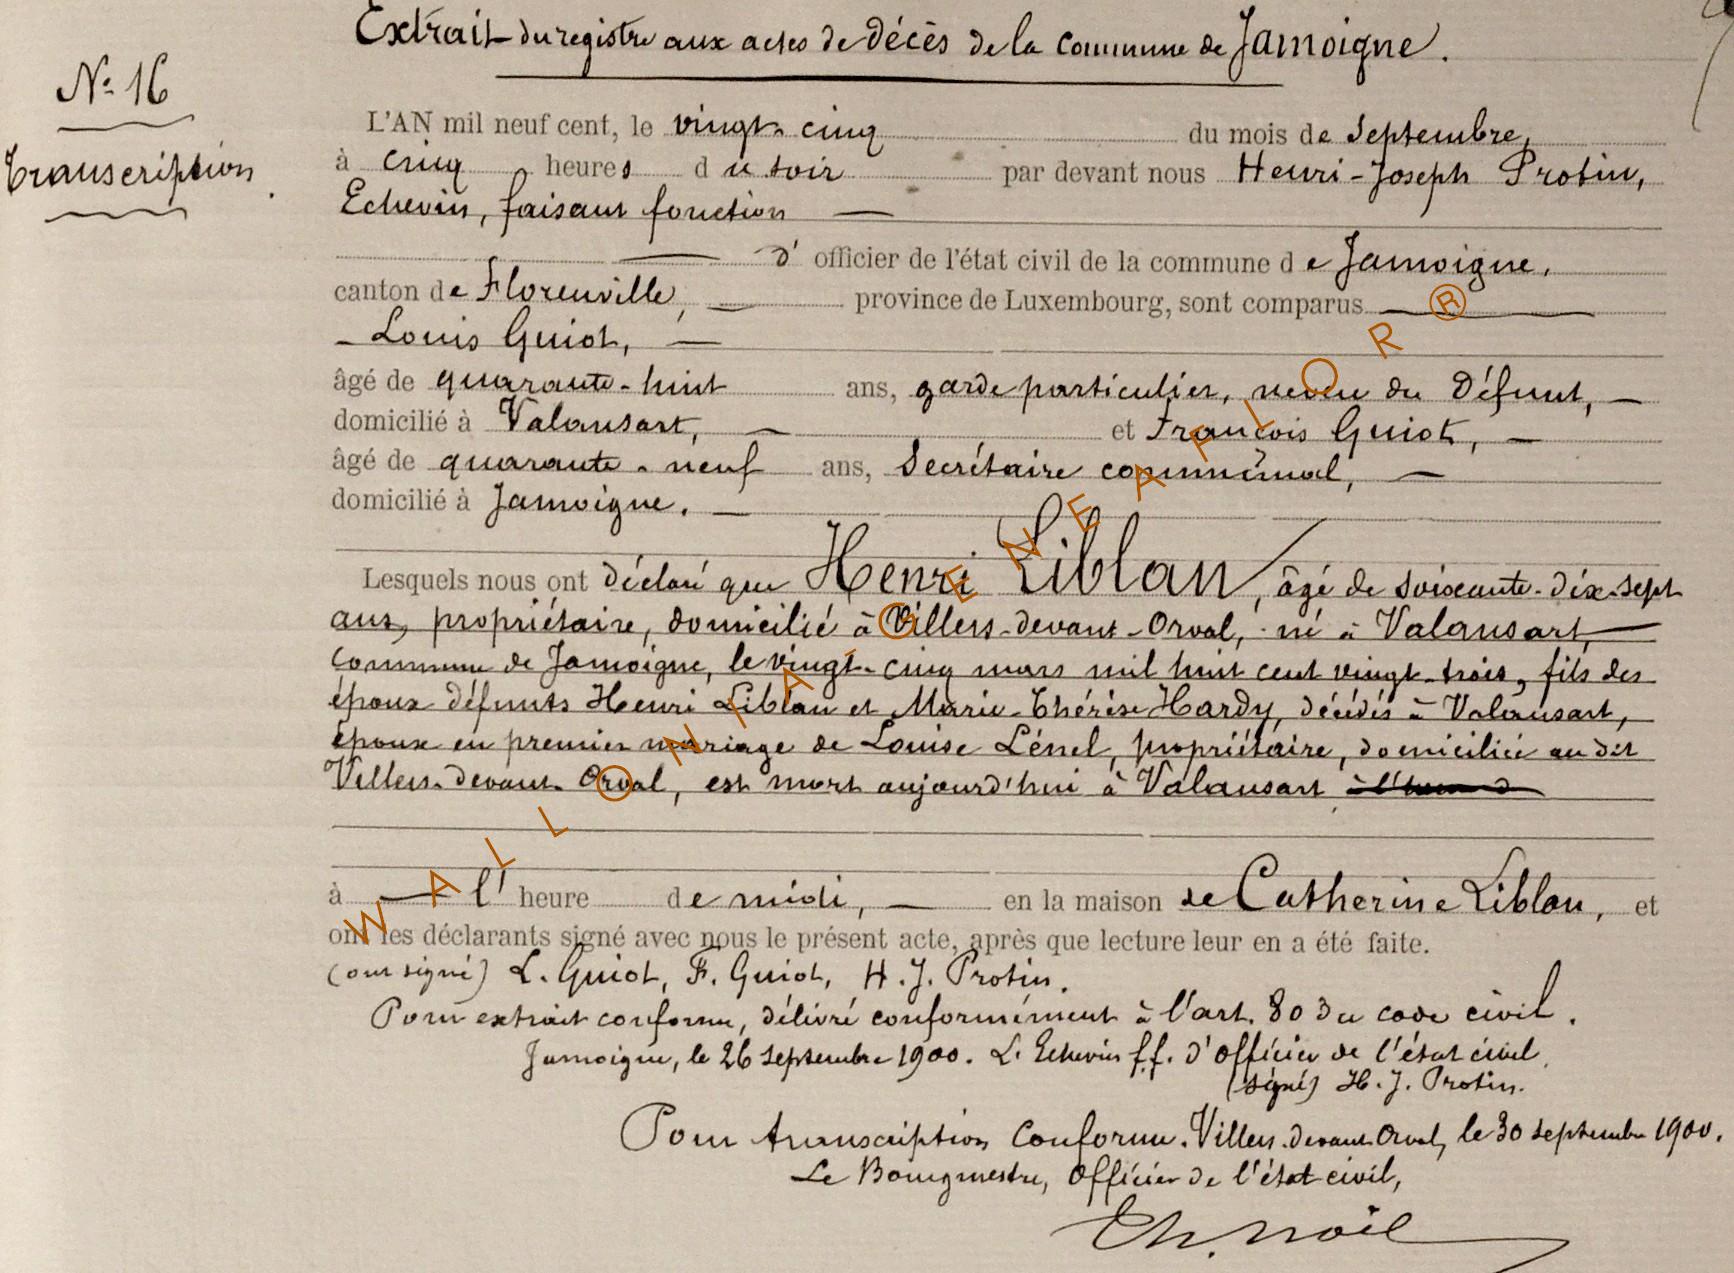 Extrait du registre aux actes de décès de la commune de Jamoigne.
N° 16
Transcription.
L'AN mil neuf cent, le vingt-cinq du mois de Septembre,
à cinq heures du soir par devant nous Henri-Joseph Protin,
Echevin, faisant fonction —
— d' officier de l'état civil de la commune de Jamoigne,
canton de Florenville, — province de Luxembourg, sont comparus —
— Louis Guiot, —
âgé de quarante-huit ans, garde particulier, neveu du défunt, —
domicilié à Valansart, — et François Guiot, —
âgé de quarante-neuf ans, Secrétaire communal, —
domicilié à Jamoigne. —
Lesquels nous ont déclaré que Henri Liblan, âgé de soixante-dix-sept
ans, propriétaire, domicilié à Villers-devant-Orval, né à Valansart, —
commune de Jamoigne, le vingt-cinq mars mil huit cent vingt-trois, fils des
époux défunts Henri Liblan et Marie-Thérèse Hardy, décédés à Valansart,
époux en premier mariage de Louise Lénel, propriétaire, domiciliée au dit
Villers-devant-Orval, est mort aujourd'hui à Valansart
à — l' heure de midi, — en la maison de Catherine Liblan, et
ont les déclarants signé avec nous le présent acte, après que lecture leur en a été faite.
(ont signé) L. Guiot, F. Guiot, H. J. Protin.
Pour extrait conforme, délivré conformément à l'art. 80 du code civil.
Jamoigne, le 26 septembre 1900. L'Echevin f.f. d'officier de l'état civil,
(signé) H. J. Protin.
Pour transcription conforme. Villers-devant-Orval, le 30 septembre 1900.
Le Bourgmestre, officier de l'état civil,
Th. Noël
WALLONIA-GENEAFLOR®